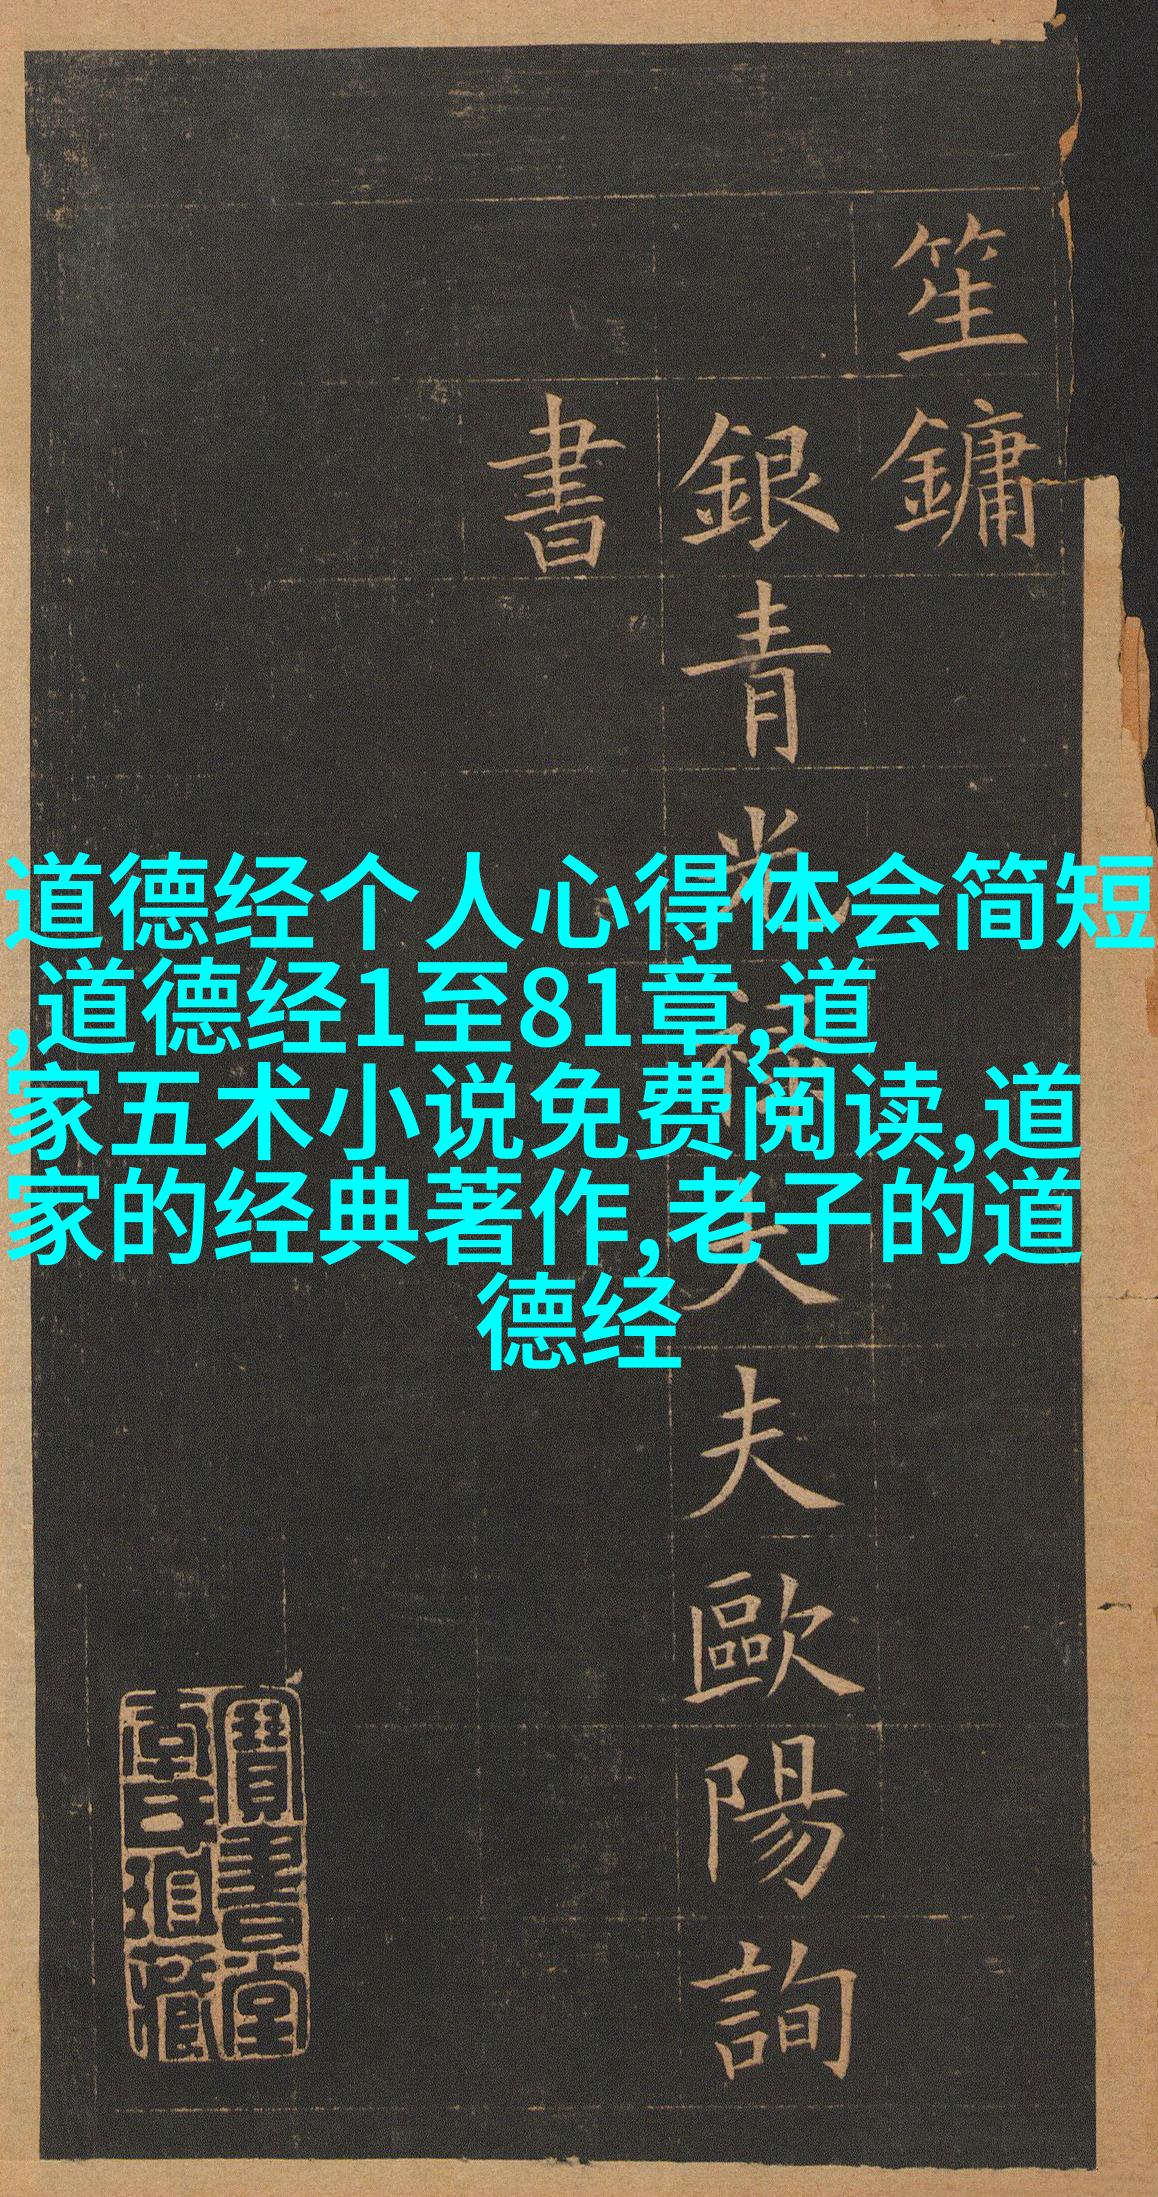 笙鏞
銀青光祿大夫歐陽詢
書
道德经个人心得体会简短
,道德经1至81章,道
家五术小说免费阅读,道
家的经典著作,老子的道
德经